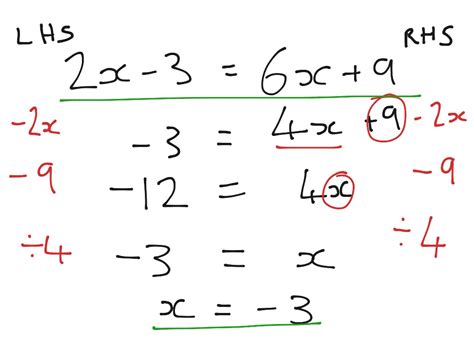 LHS RHS
2x - 3 = 6x + 9
-2x -3 = 4x +9 -2x
-9 -12 = 4x -9
÷4 -3 = x ÷4
x = -3